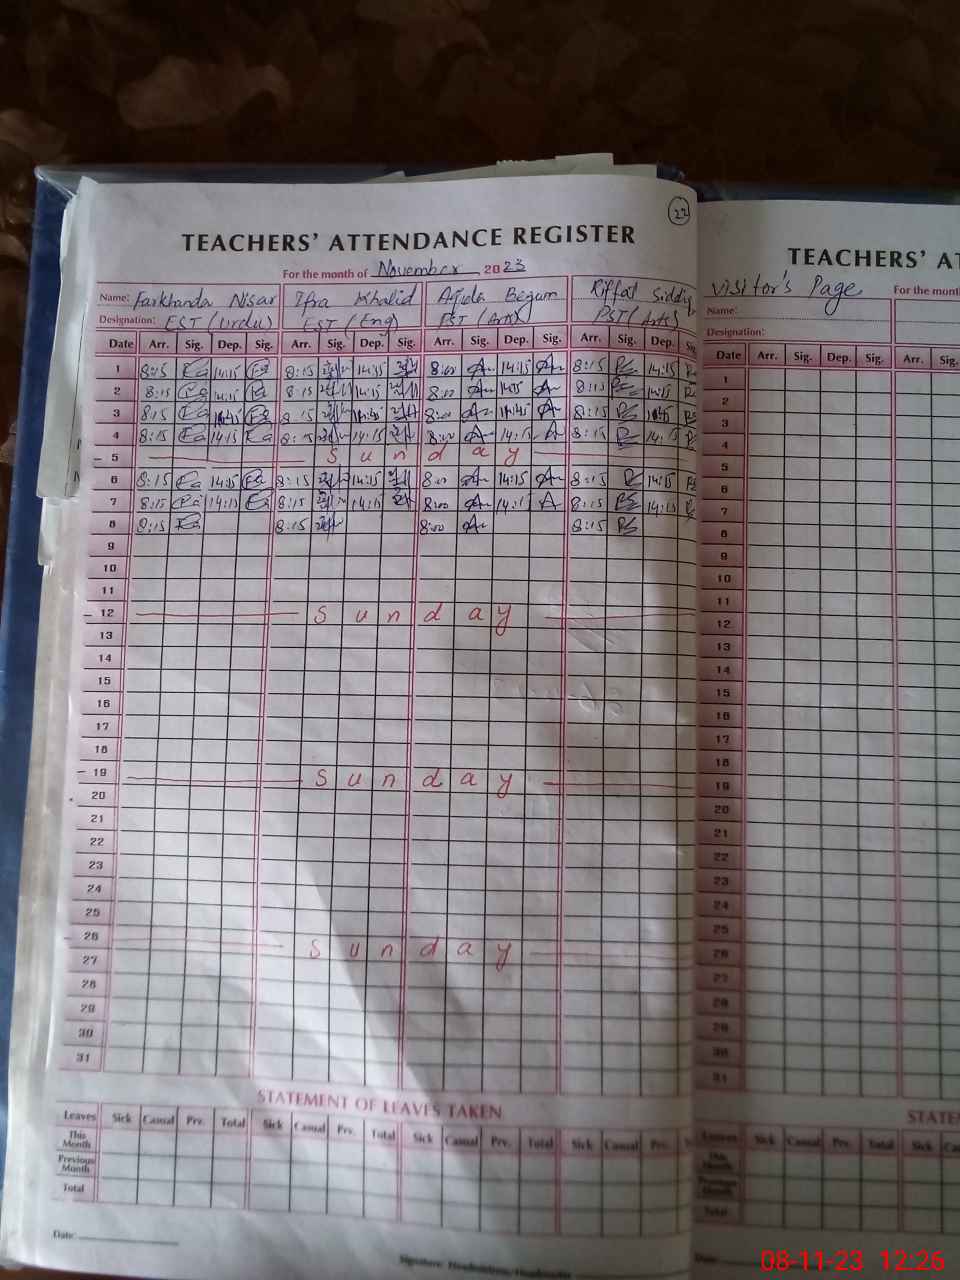 22
TEACHERS' ATTENDANCE REGISTER
For the month of November 2023
Name: Farkhanda Nisar Ifra Khalid Aqida Begum Riffat Siddiq
Designation: EST (Urdu) EST (Eng) PST (Arts) PST (Arts)
Date Arr. Sig. Dep. Sig. Arr. Sig. Dep. Sig. Arr. Sig. Dep. Sig. Arr. Sig. Dep. Sig
1 8:15 14:15 8:15 14:15 8:00 14:15 8:15 14:15
2 8:15 14:15 8:15 14:15 8:00 14:15 8:15 14:15
3 8:15 8:15 8:00 8:15
4 8:15 14:15 8:15 14:15 8:00 14:15 8:15 14:15
5 Sunday
6 8:15 14:15 8:15 14:15 8:00 14:15 8:15 14:15
7 8:15 14:15 8:15 14:15 8:00 14:15 8:15 14:15
8 8:15 8:15 8:00 8:15
9
10
11
12 Sunday
13
14
15
16
17
18
19 Sunday
20
21
22
23
24
25
26 Sunday
27
28
29
30
31
STATEMENT OF LEAVES TAKEN
Leaves Sick Casual Prv. Total Sick Casual Prv. Total Sick Casual Prv. Total Sick Casual Prv.
This Month
Previous Month
Total
Date:
Signature: Headmistress/Headmaster
TEACHERS' AT
Visitor's Page
For the mont
Name:
Designation:
Date Arr. Sig. Dep. Sig. Arr. Sig.
1
2
3
4
5
6
7
8
9
10
11
12
13
14
15
16
17
18
19
20
21
22
23
24
25
26
27
28
29
30
31
STATE
Leaves Sick Casual Prv. Total Sick Ca
This Month
Previous Month
Total
Date:
08-11-23 12:26